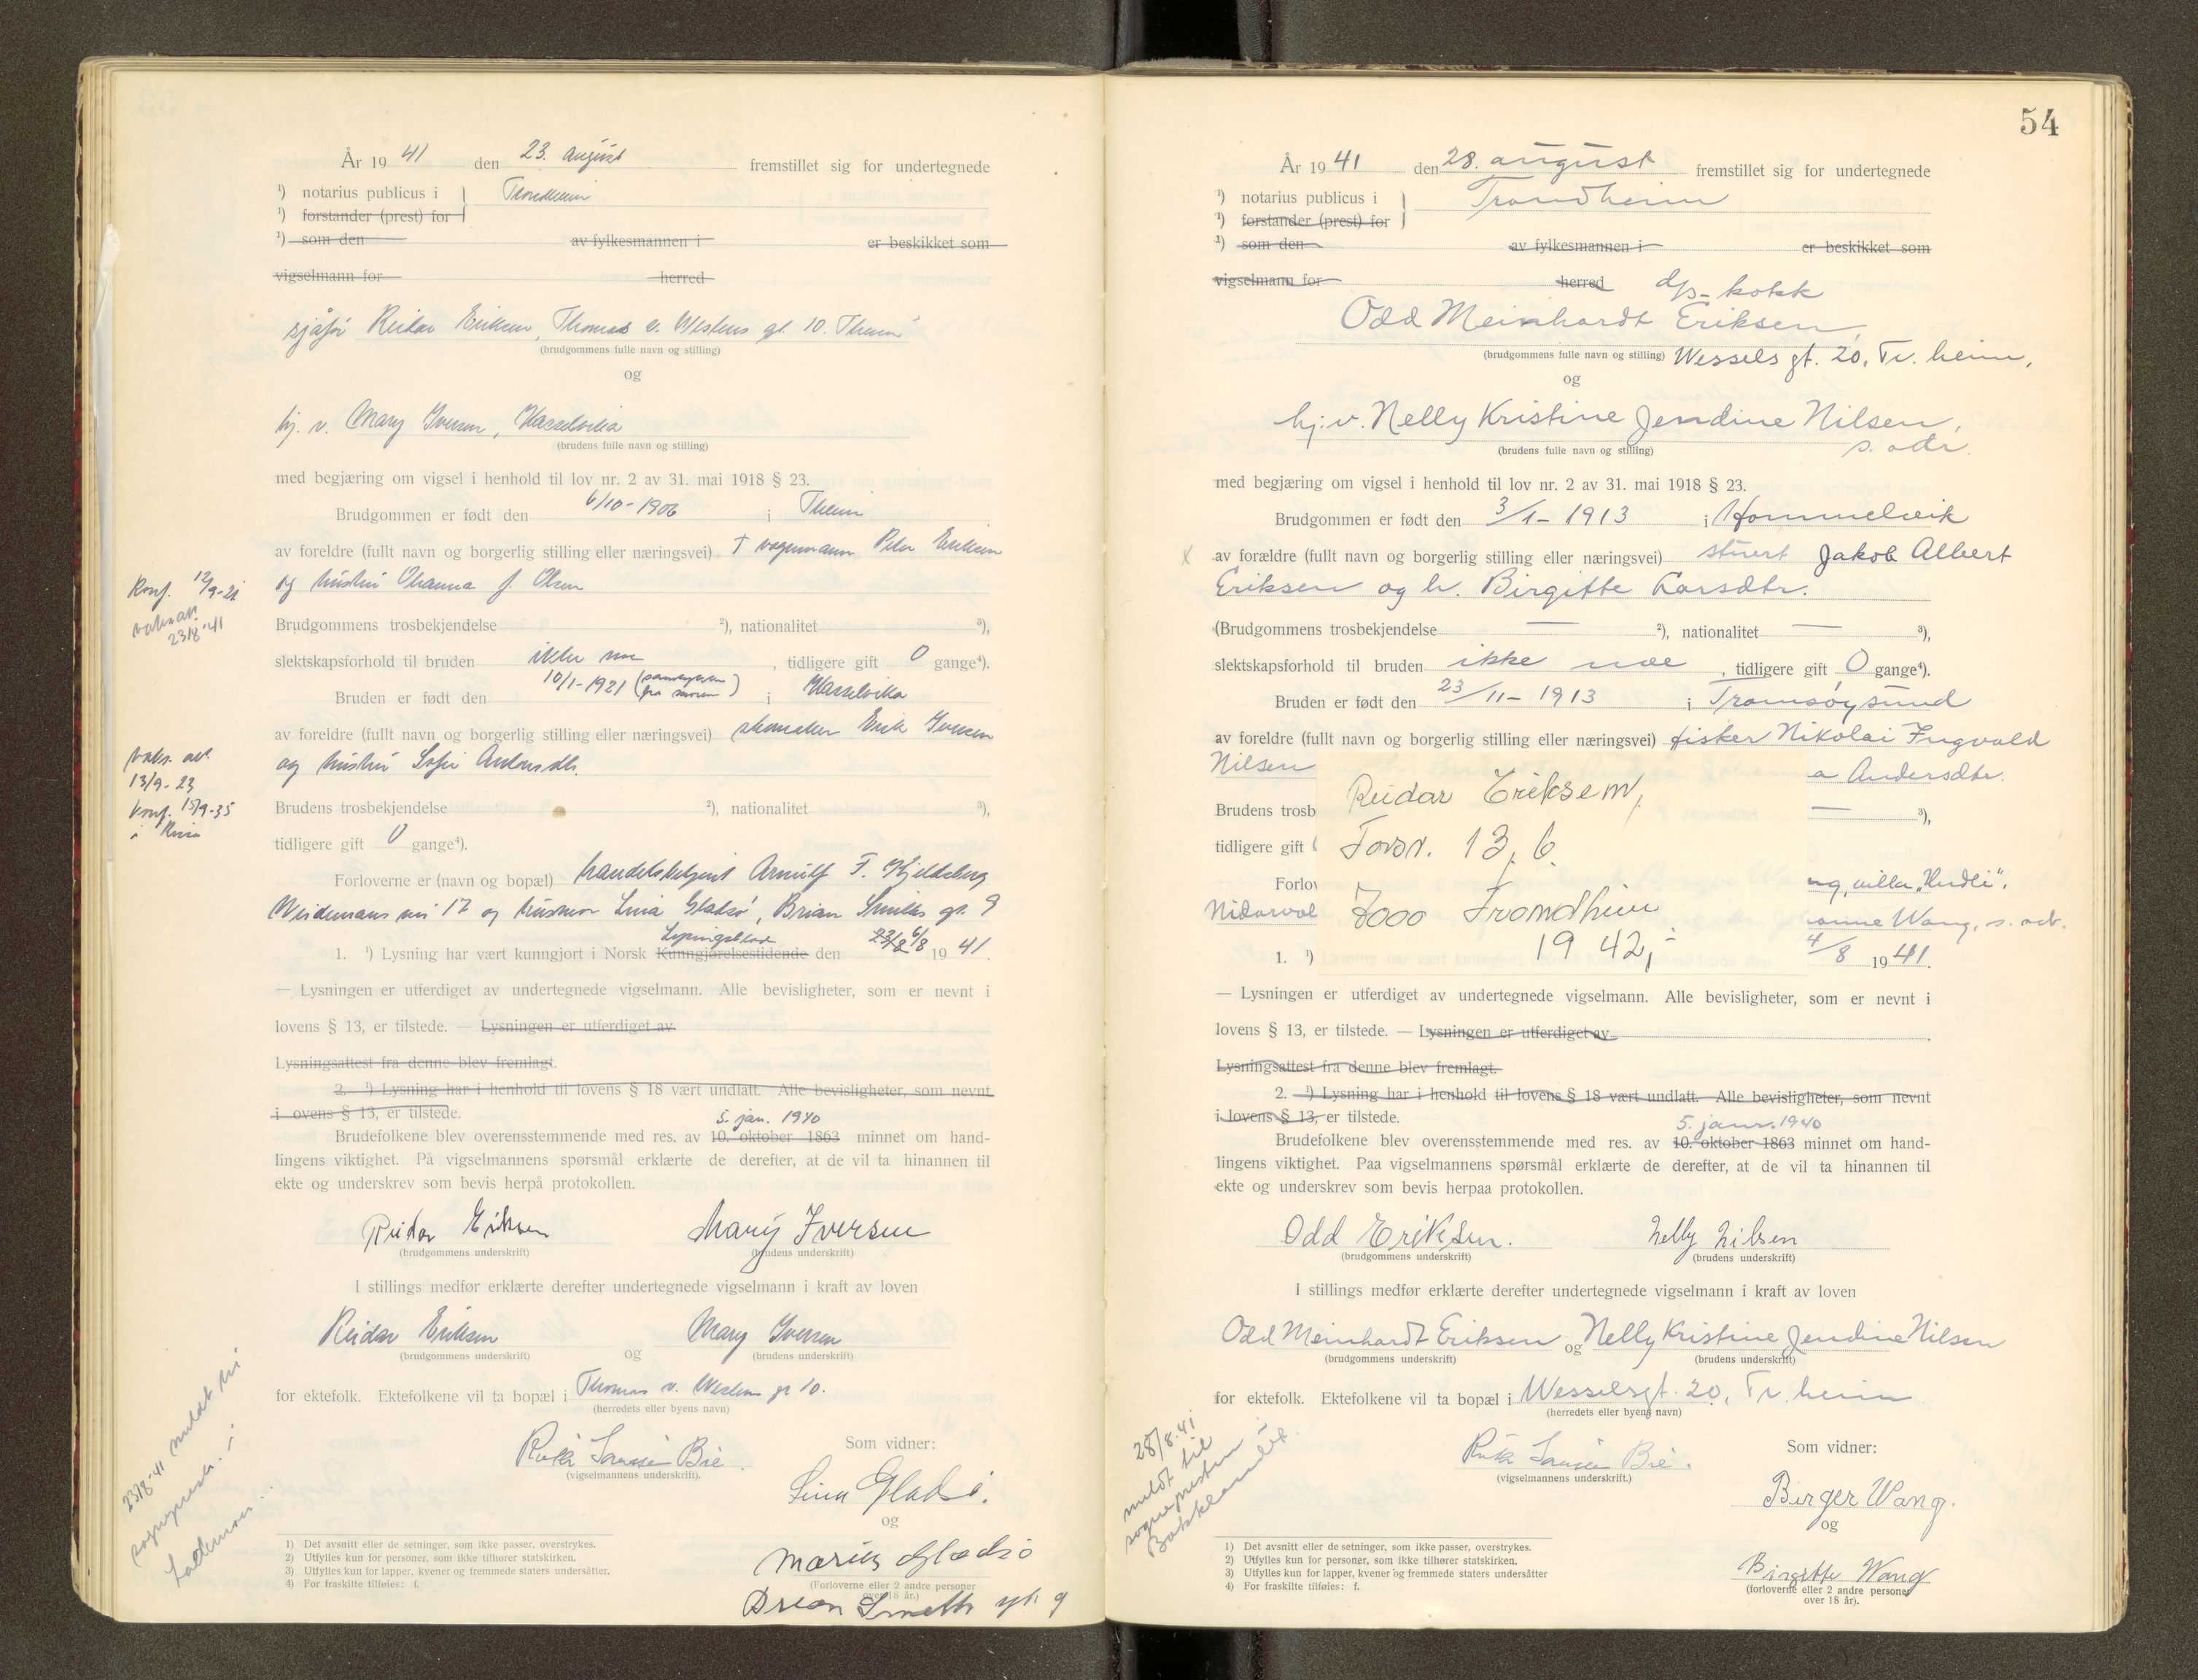 År 19 41 den 23. august fremstillet sig for undertegnede
¹) notarius publicus i } Trondheim
¹) forstander (prest) for
¹) som den av fylkesmannen i er beskikket som
vigselmann for herred
sjåfør Reidar Eriksen, Thomas v. Westens gt. 10. Theim
(brudgommens fulle navn og stilling)
og
hj. v. Mary Iversen, Hasselvika
(brudens fulle navn og stilling)
med begjæring om vigsel i henhold til lov nr. 2 av 31. mai 1918 § 23.
Brudgommen er født den 6/10-1906 i Theim
av foreldre (fullt navn og borgerlig stilling eller næringsvei) † vognmann Peder Eriksen
og hustru Ohanna f. Olsen
Konf. 12/9-21
23/8-41
Brudgommens trosbekjendelse ²), nationalitet ³),
slektskapsforhold til bruden ikke noe, tidligere gift 0 gange⁴).
Bruden er født den 10/1-1921 (samtykke fra moren) i Hasselvika
av foreldre (fullt navn og borgerlig stilling eller næringsvei) skomaker Erik Iversen
og hustru Sofie Antonsdtr.
vaks. att.
13/9-23
konf. 15/9-35
i Rissa
Brudens trosbekjendelse ²), nationalitet ³),
tidligere gift 0 gange⁴).
Forloverne er (navn og bopæl) handelsbetjent Arnulf F. Kjeldsberg
Weidemans vei 17 og husmor Lina Gladsø, Brian Smiths gt. 9
1. ¹) Lysning har vært kunngjort i Norsk Kunngjørelsestidende Lysingsblad den 23/8 6/8 19 41.
— Lysningen er utferdiget av undertegnede vigselmann. Alle bevisligheter, som er nevnt i
lovens § 13, er tilstede. — Lysningen er utferdiget av
Lysningsattest fra denne blev fremlagt.
2. ¹) Lysning har i henhold til lovens § 18 vært undlatt. Alle bevisligheter, som nevnt
i lovens § 13, er tilstede.
5. jan. 1940
Brudefolkene blev overensstemmende med res. av 10. oktober 1863 minnet om hand-
lingens viktighet. På vigselmannens spørsmål erklærte de derefter, at de vil ta hinannen til
ekte og underskrev som bevis herpå protokollen.
Reidar Eriksen Mary Iversen
(brudgommens underskrift) (brudens underskrift)
I stillings medfør erklærte derefter undertegnede vigselmann i kraft av loven
Reidar Eriksen og Mary Iversen
(brudgommens underskrift) (brudens underskrift)
for ektefolk. Ektefolkene vil ta bopæl i Thomas v. Westens gt 10.
(herredets eller byens navn)
23/8-41 meldt til
sogneprest. i
Lademoen
Som vidner:
(vigselmannens underskrift).
Lina Gladsø.
og
Marius Gladsø
(Forloverne eller 2 andre personer
over 18 år.)
Brian Smeths gt. 9
1) Det avsnitt eller de setninger, som ikke passer, overstrykes.
2) Utfylles kun for personer, som ikke tilhører statskirken.
3) Utfylles kun for lapper, kvener og fremmede staters undersåtter.
4) For fraskilte tilføies: f.
54
År 19 41 den 28. august fremstillet sig for undertegnede
¹) notarius publicus i } Trondheim
¹) forstander (prest) for
¹) som den av fylkesmannen i er beskikket som
vigselmann for herred
d/s- kokk
Odd Meinhardt Eriksen,
(brudgommens fulle navn og stilling) Wessels gt. 20, Tr. heim,
og
hj. v. Nelly Kristine Jendine Nilsen,
(brudens fulle navn og stilling) s. adr.
med begjæring om vigsel i henhold til lov nr. 2 av 31. mai 1918 § 23.
Brudgommen er født den 3/1-1913 i Hommelvik
x av forældre (fullt navn og borgerlig stilling eller næringsvei) stuert Jakob Albert
Eriksen og h. Birgitte Larsdtr.
(Brudgommens trosbekjendelse — ²), nationalitet — ³),
slektskapsforhold til bruden ikke noe, tidligere gift 0 gange⁴).
Bruden er født den 23/11-1913 i Tromsøysund
av foreldre (fullt navn og borgerlig stilling eller næringsvei) fisker Nikolai Ingvald
Nilsen a Andersdtr.
Reidar Eriksen,
Brudens trosb — ³),
Forsv. 13. 6.
tidligere gift
Forlov ng, villa "Hudli".
7000 Trondheim
Nidarvol anne Wang, s. adr.
1942,-
1. ¹) 4/8 19 41.
— Lysningen er utferdiget av undertegnede vigselmann. Alle bevisligheter, som er nevnt i
lovens § 13, er tilstede. — Lysningen er utferdiget av
Lysningsattest fra denne blev fremlagt.
2. ¹) Lysning har i henhold til lovens § 18 vært undlatt. Alle bevisligheter, som nevnt
i lovens § 13, er tilstede.
5. janr. 1940
Brudefolkene blev overensstemmende med res. av 10. oktober 1863 minnet om hand-
lingens viktighet. Paa vigselmannens spørsmål erklærte de derefter, at de vil ta hinannen til
ekte og underskrev som bevis herpaa protokollen.
Odd Eriksen. Nelly Nilsen
(brudgommens underskrift) (brudens underskrift)
I stillings medfør erklærte derefter undertegnede vigselmann i kraft av loven
Odd Meinhardt Eriksen og Nelly Kristine Jendine Nilsen
(brudgommens underskrift) (brudens underskrift)
for ektefolk. Ektefolkene vil ta bopæl i Wesselsgt. 20, Tr. heim
(herredets eller byens navn)
28/8.41
meldt til
sognepresten i
Bakklandet.
Som vidner:
(vigselmannens underskrift.)
Birger Wang.
og
Birgitte Wang
(forloverne eller 2 andre personer
over 18 år).
1) Det avsnitt eller de setninger, som ikke passer, overstrykes.
2) Utfylles kun for personer, som ikke tilhører statskirken.
3) Utfylles kun for lapper, kvener og fremmede staters undersåtter
4) For fraskilte tilføies: f.